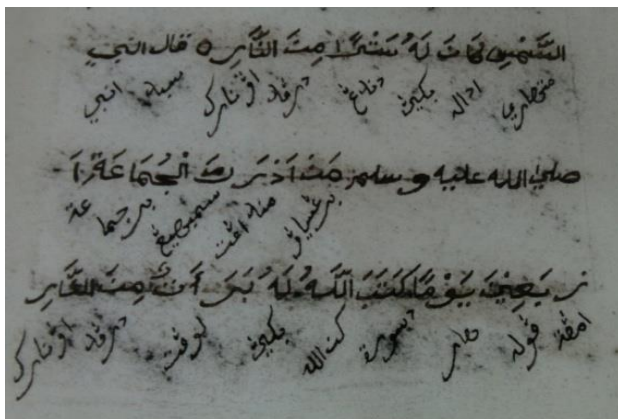 الشَّمْسِ كَانَ لَهُ سَتْرًا مِنَ النَّارِ ه قال النبي
متهاري اداله بكين درڤد اڤي نارك سبدا النبي
صلي الله عليه وسلم مَنْ اَدْرَكَ الْجُمَاعَةَ اَ
برڠسياڤ سمبهيڠ برجماعة
رْبَعِيْنَ يَوْمًا كَتَبَ اللَّهُ لَهُ بَرَأَةٌ مِنَ النَّارِ
امڤت ڤوله هاري دسورة الله بكين لوڤت درڤد اڤي نارك